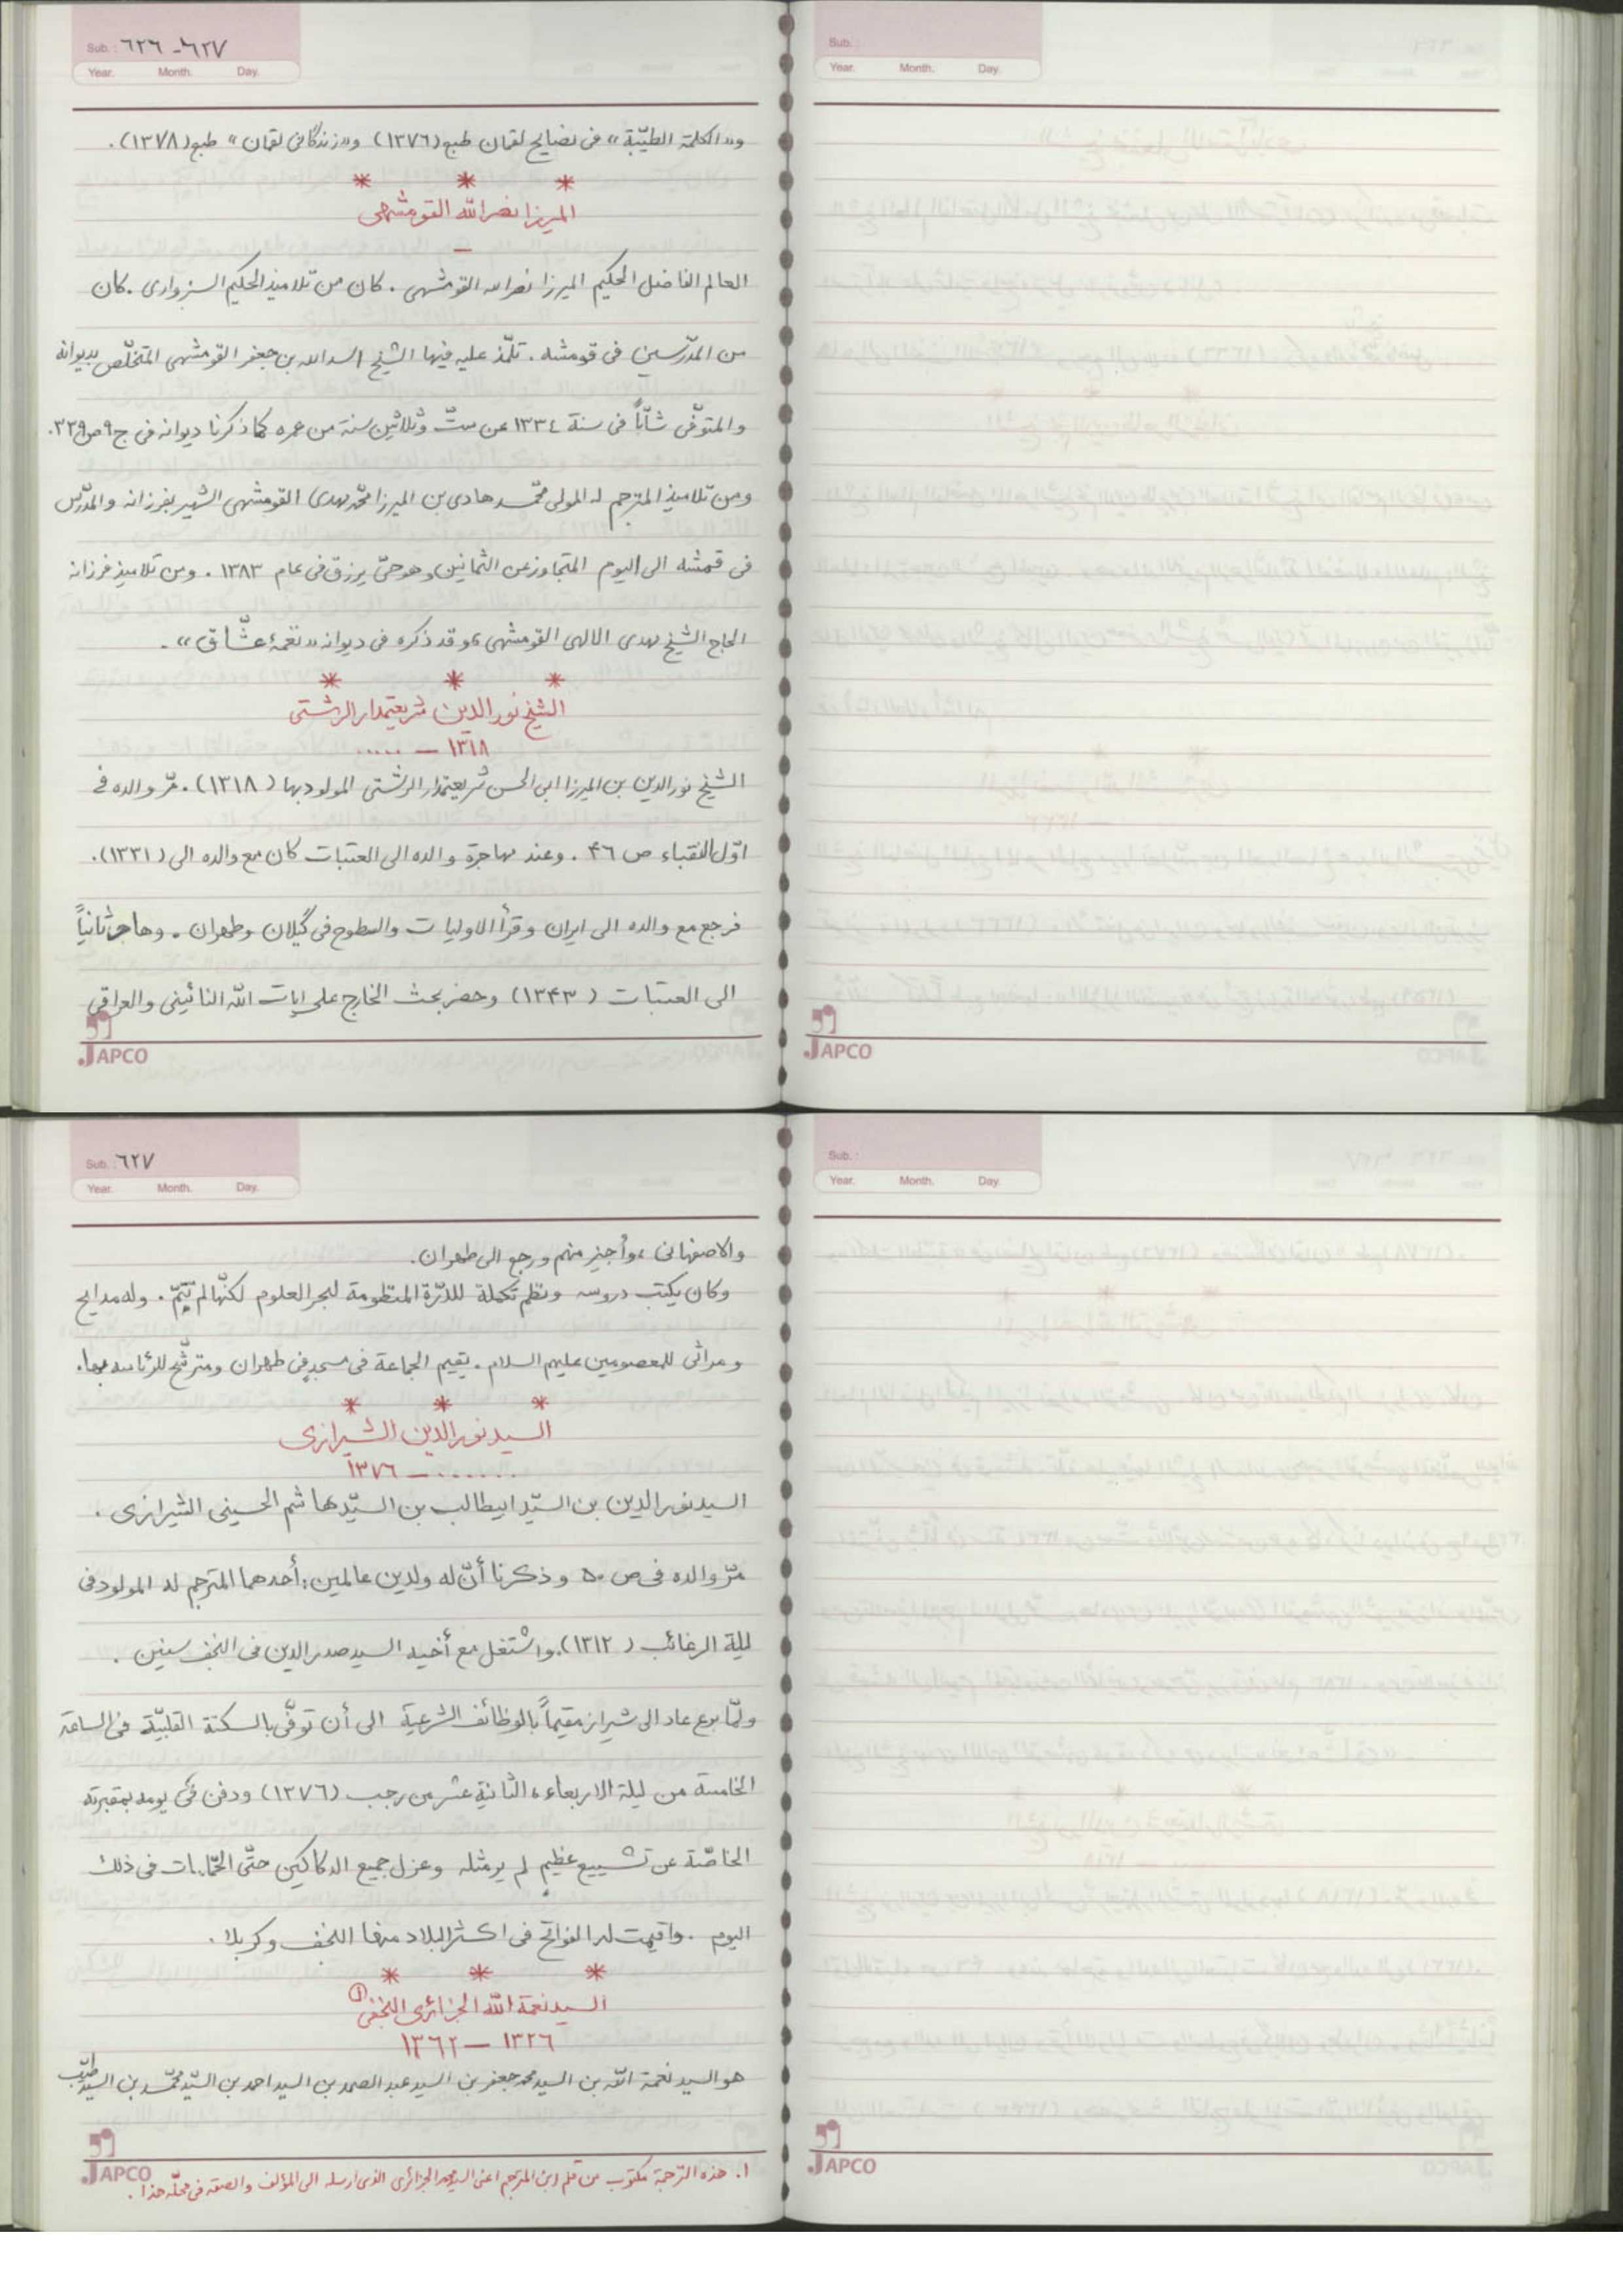 Sub. : ٦٢٦ - ٦٢٧
Year. Month. Day.
و«الكلمة الطيّبة» فى نصايح لقمان طبع (١٣٧٦) و«زندگانى لقمان» طبع (١٣٧٨).
* * *
الميرزا نصر الله القومشهى
—
العالم الفاضل الحكيم الميرزا نصر الله القومشهى . كان من تلاميذ الحكيم السبزوارى . كان
من المدّرسين فى قومشه . تلمّذ عليه فيها الشيخ اسد الله بن جعفر القومشهى المتخلّص بديوانه
والمتوفّى شابّاً فى سنة ١٣٣٤ عن ستّ وثلاثين سنة من عمره كما ذكرنا ديوانه فى ج ٩ ص ٣٣٩.
ومن تلاميذ المترجم له المولى محمّد هادى بن الميرزا محمّد مهدى القومشهى الشهير بفرزانه والمدّرس
فى قمشه الى اليوم المتجاوز عن الثمانين وهو حىّ يرزق فى عام ١٣٨٣ . ومن تلاميذ فرزانه
الحاج الشيخ مهدى الالهى القومشهى ، وقد ذكره فى ديوانه «نغمهٔ عشّاق» .
* * *
الشيخ نور الدين شريعتمدار الرشتى
١٣١٨ — .....
الشيخ نور الدين بن الميرزا ابى الحسن شريعتمدار الرشتى المولود بها (١٣١٨) . مرّ والده فى
اوّل النقباء ص ۴۶ . وعند مهاجرة والده الى العتبات كان مع والده الى (١٣٣١).
فرجع مع والده الى ايران وقرأ الاوليات والسطوح فى گيلان وطهران . وهاجر ثانياً
الى العتبات (١٣۴٣) وحضر بحث الخارج على ايات الله النائينى والعراقى
JAPCO
Sub. :
Year. Month. Day.
JAPCO
Sub. : ٦٢٧
Year. Month. Day.
والاصفهانى ، وأجيز منهم ورجع الى طهران.
وكان يكتب دروسه ونظم تكملة للدّرّة المنظومة لبحر العلوم لكنّها لم تتمّ . وله مدايح
ومراثى للمعصومين عليهم السلام . يقيم الجماعة فى مسجدٍ فى طهران ومترشّح للرئاسه بها.
* * *
السيد نور الدين الشيرازى
...... — ١٣٧٦
السيد نور الدين بن السيّد ابيطالب بن السيّد هاشم الحسينى الشيرازى .
مرّ والده فى ص ٥٠ وذكرنا أنّ له ولدين عالمين : أحدهما المترجم له المولود فى
ليلة الرغائب (١٣١٢). واشتغل مع أخيه السيد صدر الدين فى النجف سنين .
ولمّا برع عاد الى شيراز مقيماً بالوظائف الشرعية الى أن توفّى بالسكتة القلبيّة فى الساعة
الخامسة من ليلة الاربعاء ، الثانية عشر من رجب (١٣٧٦) ودفن فى يومه بمقبرته
الخاصّة عن تشييع عظيم لم ير مثله وعزل جميع الدكاكين حتّى الحمّامات فى ذلك
اليوم . واقيمت له الفواتح فى اكثر البلاد منها النجف وكربلا .
* * *
السيد نعمة الله الجزائرى النجفى (١)
١٣٢٦ — ١٣٦٢
هو السيد نعمة الله بن السيد محمد جعفر بن السيد عبد الصمد بن السيد احمد بن السيّد محمّد بن السيد طيّب
JAPCO
١. هذه الترجمة مكتوب من قلم ابن المترجم اعنى السيد محمد الجزائرى الذى ارسله الى المؤلف والصقه فى محلّه هذا .
Sub. :
Year. Month. Day.
JAPCO